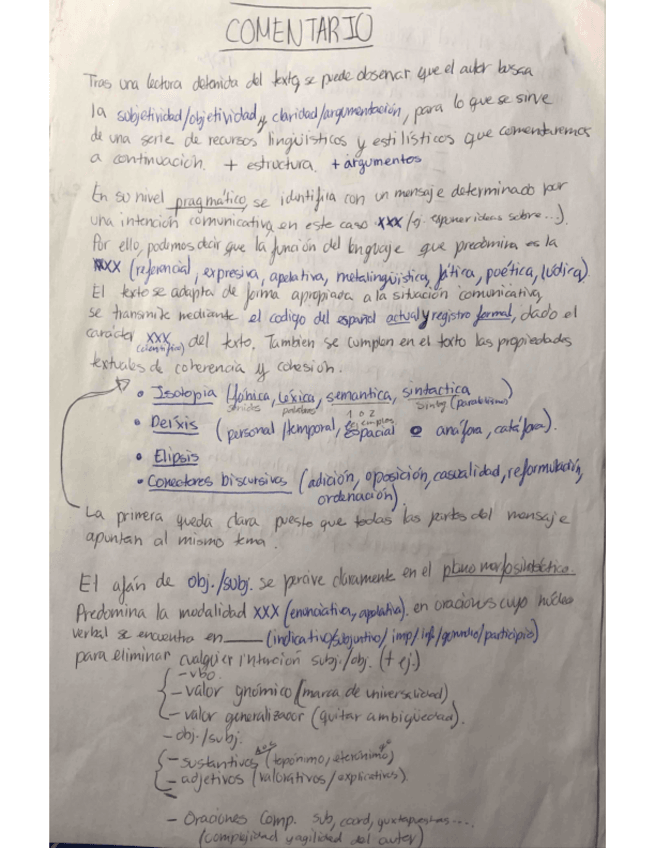 COMENTARIO
Tras una lectura detenida del texto, se puede observar que el autor busca
la subjetividad/objetividad y claridad/argumentación, para lo que se sirve
de una serie de recursos lingüísticos y estilísticos que comentaremos
a continuación. + estructura. + argumentos
En su nivel pragmático, se identifica con un mensaje determinado por
una intención comunicativa, en este caso XXX (ej. exponer ideas sobre...).
Por ello, podemos decir que la función del lenguaje que predomina es la
XXX (referencial, expresiva, apelativa, metalingüística, fática, poética, lúdica).
El texto se adapta de forma apropiada a la situación comunicativa,
se transmite mediante el codigo del español actual y registro formal, dado el
carácter XXX del texto. Tambien se cumplen en el texto las propiedades
(científico)
textuales de coherencia y cohesión.
• Isotopia (fónica, léxica, semantica, sintactica)
sonidos palabras sintag (paralelismo)
• Deíxis (personal/temporal, espacial o anáfora, catáfora).
1 o 2 ejemplos
• Elipsis
• Conectores discursivos (adición, oposición, casualidad, reformulación,
ordenación)
La primera queda clara puesto que todas las partes del mensaje
apuntan al mismo tema.
El afán de obj./subj. se percive claramente en el plano morfosintáctico.
Predomina la modalidad XXX (enunciativa, apelativa). en oraciones cuyo núcleo
verbal se encuentra en ____ (indicativo/subjuntivo/imp/inf/gerundio/participio)
para eliminar cualquier intención subj./obj. (+ ej.)
- vbo.
- valor gnómico (marca de universalidad)
- valor generalizador (quitar ambigüedad).
- obj./subj.
- sustantivos (topónimo,
- adjetivos (valorativos/explicativos).
- Oraciones Comp. sub, coord, yuxtapuestas...
(complejidad y agilidad del autor)